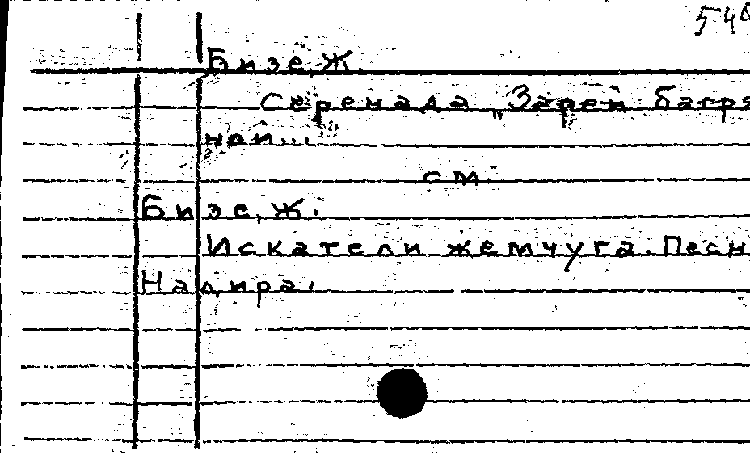 540
Бизе, Ж
Серенада „Зарей багря
ной...
см.
Бизе, Ж.
Искатели жемчуга. Песн
Надира.